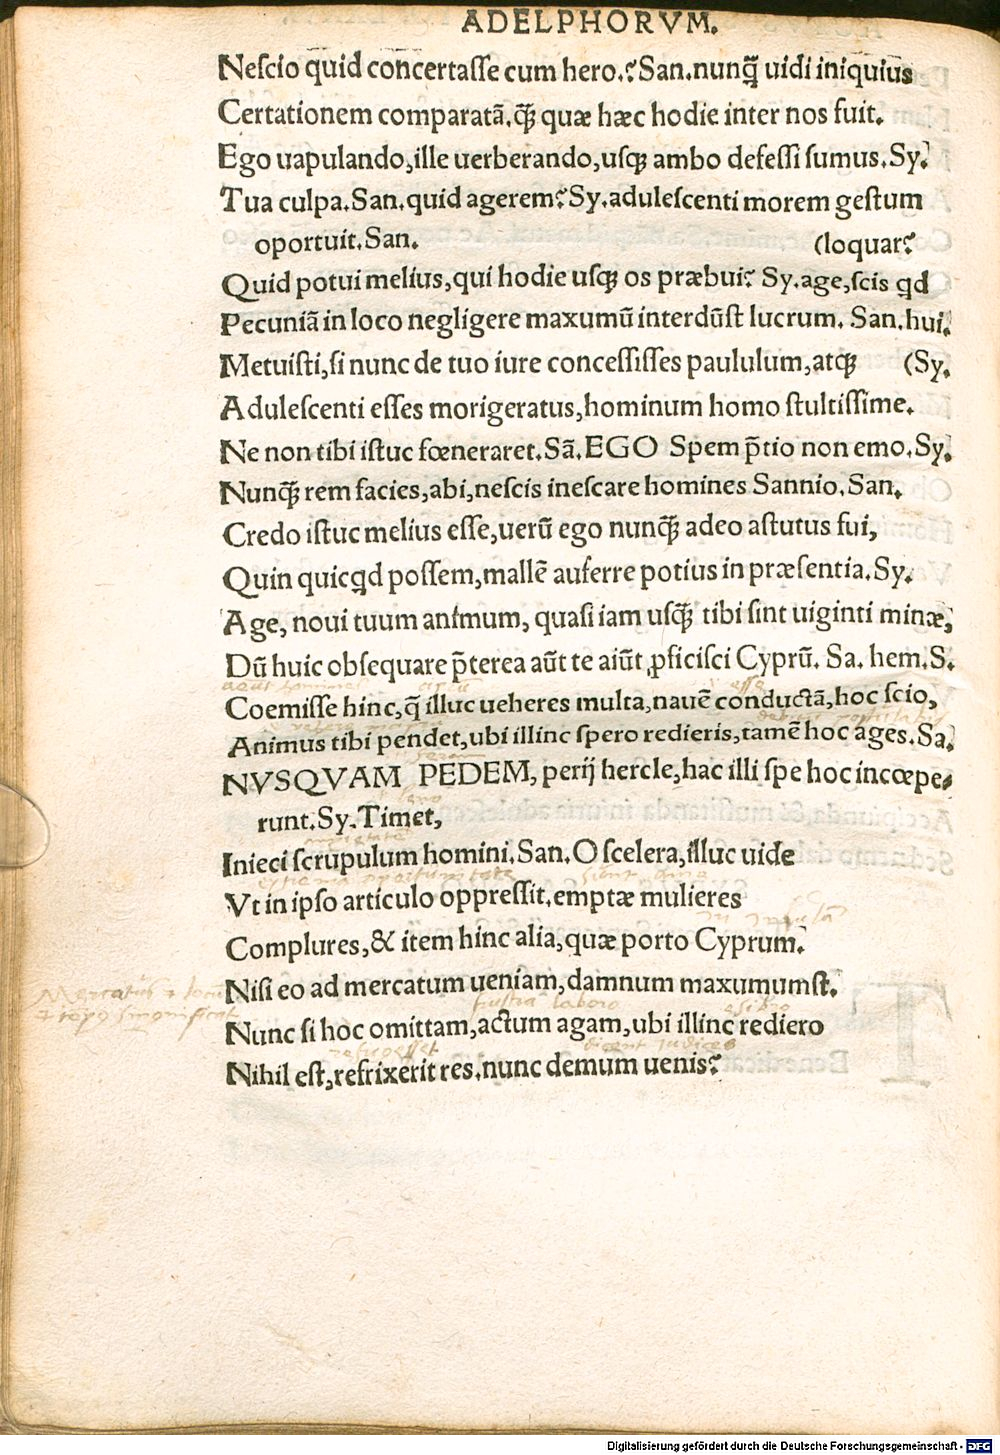 ADELPHORVM.
Neſcio quid concertaſſe cum hero.? San. nunꝗ̃ uidi iniquius
Certationem comparatã. ꝗ̃ quæ hæc hodie inter nos fuit.
Ego uapulando, ille uerberando, uſꝗ ambo defeſſi ſumus. Sy.
Tua culpa. San. quid agerem? Sy. aduleſcenti morem geſtum
oportuit. San. (loquar?
Quid potui melius, qui hodie uſꝗ os præbui? Sy. age, ſcis ꝗd
Pecuniã in loco negligere maxumũ interdũſt lucrum. San. hui.
Metuiſti, ſi nunc de tuo iure conceſſiſſes paululum, atꝗ (Sy.
Aduleſcenti eſſes morigeratus, hominum homo ſtultiſſime.
Ne non tibi iſtuc fœneraret. Sã. EGO Spem p̃tio non emo. Sy.
Nunꝗ̃ rem facies, abi, neſcis ineſcare homines Sannio. San.
Credo iſtuc melius eſſe, uerũ ego nunꝗ̃ adeo aſtutus fui,
Quin quicꝗd poſſem, mallẽ auferre potius in præſentia. Sy.
Age, noui tuum animum, quaſi iam uſꝗ̃ tibi ſint uiginti minæ,
Dũ huic obſequare p̃terea aũt te aiũt ꝓficiſci Cyprũ. Sa. hem. S.
Coemiſſe hinc, q̃ illuc ueheres multa, nauẽ conductã, hoc ſcio,
Animus tibi pendet, ubi illinc ſpero redieris, tamẽ hoc ages. Sa.
NVSQVAM PEDEM, perij hercle, hac illi ſpe hoc incœpe-
runt. Sy. Timet,
Inieci ſcrupulum homini. San. O ſcelera, illuc uide
Vt in ipſo articulo oppreſſit. emptæ mulieres
Complures, & item hinc alia, quæ porto Cyprum.
Niſi eo ad mercatum ueniam, damnum maxumumst.
frustra laboro
Nunc ſi hoc omittam, actum agam, ubi illinc rediero
dicent judices
Nihil eſt, refrixerit res. nunc demum uenis?
Digitalisierung gefördert durch die Deutsche Forschungsgemeinschaft - DFG